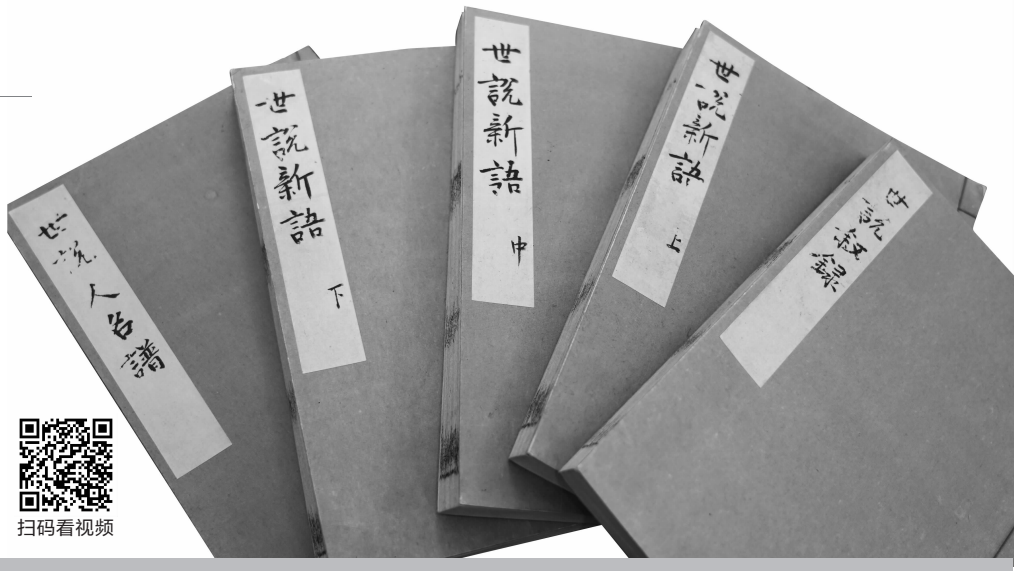 世説人名譜
世説新語 下
世説新語 中
世説新語 上
世説叙録
扫码看视频